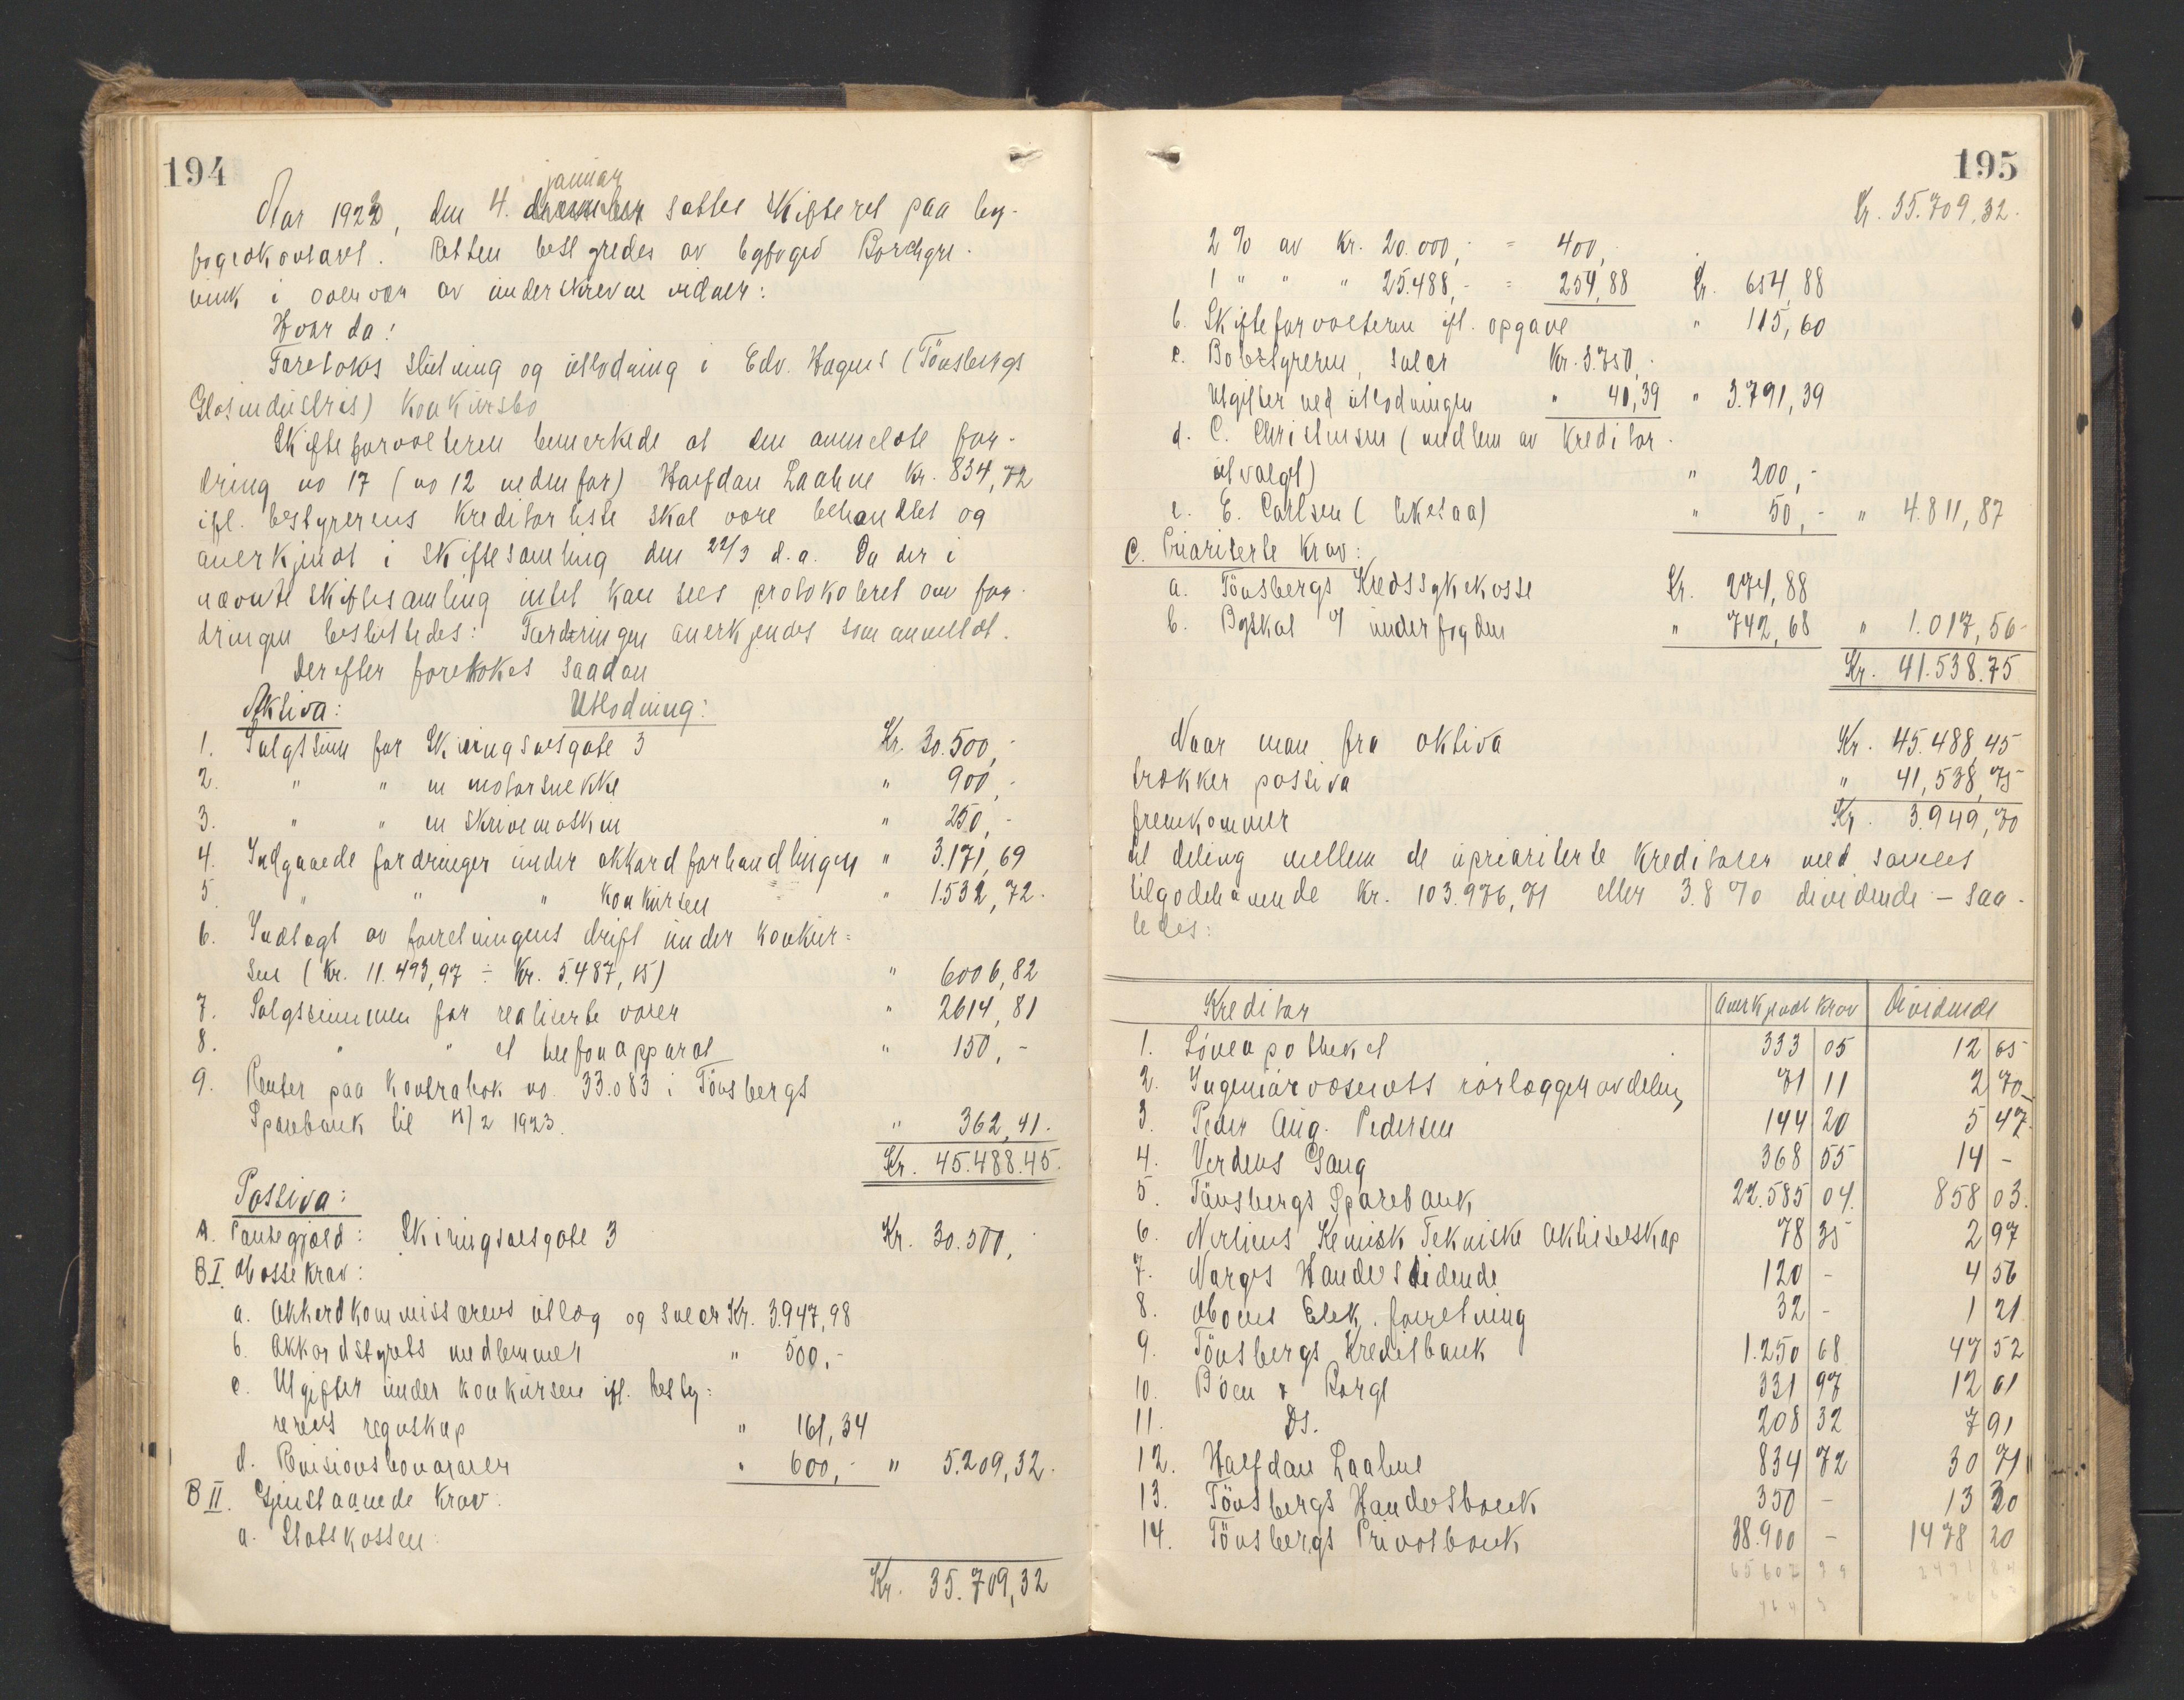 194
januar
Aar 1923, den 4. december sattes Skifteret paa by-
fogedkontoret. Retten bestyredes av byfoged Borchgre-
vink i overvær av underskrevne vidner:
Hvor da:
Foretokes slutning og utlodning i Edv. Hagens (Tönsbergs
Glasindustris) Konkursbo
Skifteforvalteren bemerkede at den anmeldte for-
dring no 17 (no 12 nedenfor) Halfdan Laahne Kr. 834,72
ifl. bestyrerens Kreditorliste skal være behandlet og
anerkjendt i skiftesamling den 22/3 d.a. Da der i
nævnte skiftesamling intet kan sees protokoleret om for-
dringen besluttedes: Fordringen anerkjendes som anmeldt.
Derefter foretokes saadan
Aktiva: Utlodning:
1. Salgssum for Skiringssalsgate 3 Kr. 30.500,-
2. " " en motorsnekke " 900,-
3. " " en skrivemaskin " 250,-
4. Indgaaede fordringer under akkordforhandlingen " 3.171,69
5. " " " konkursen " 1.532,72.
6. Indtægt av forretningens drift under konkur=
sen (Kr. 11.493,97 ÷ Kr. 5.487,15) " 6006,82
7. Salgssummen for realiserte varer " 2614,81
8. " " et telefonapparat " 150,-
9. Renter paa Kontrabok no. 33.083 i Tönsbergs
Sparebank til 15/2 1923. " 362,41.
Kr. 45.488.45.
Passiva:
A. Pantegjæld: Skiringssalsgate 3 Kr. 30.500,-
B I. Massekrav:
a. Akkordkommissærens utlæg og salær Kr. 3.947,98
b. Akkordstyrets medlemmer " 500,-
c. Utgifter under konkursen ifl. besty=
rerens regnskap " 161,34
d. Revisionshonorarer " 600,- " 5.209,32.
B II. Gjenstaaende Krav:
a. Statskassen:
Kr. 35.709,32
195
Kr. 35.709,32.
2 % av Kr. 20.000,- = 400,-
1 " " " 25.488,- = 254,88 Kr. 654,88
b. Skifteforvalteren ifl. opgave " 115,60
c. Bobestyreren, salær Kr. 3.750,-
Utgifter ved utlodningen " 41,39 " 3.791,39
d. C. Christensen (medlem av Kreditor-
utvalget) " 200,-
e. E. Carlsen (likesaa) " 50,- " 4.811,87
C. Prioriterte Krav:
a. Tönsbergs Kredssykekasse Kr. 274,88
b. Byskat v/ underfogden " 742,68 " 1.017,56-
Kr. 41.538.75
Naar man fra aktiva Kr. 45.488,45
trækker passiva " 41,538,75
fremkommer Kr. 3.949,70
til deling mellem de uprioriterte kreditorer med sammes
tilgodehavende Kr. 103.976,71 eller 3.8 % dividende – saa-
ledes:
Kreditor Anerkjendt Krav Dividende
1. Löveapotheket 333 05 12 65
2. Ingeniörvæsenets rörlæggeravdeling 71 11 2 70
3. Peder Aug. Pedersen 144 20 5 47
4. Verdens Gang 368 55 14 -
5. Tönsbergs Sparebank 22.585 04. 858 03.
6. Nerliens Kemisk Tekniske Aktieselskap 78 35 2 97
7. Norges Handelstidende 120 - 4 56
8. Moens Elek. forretning 32 - 1 21
9. Tönsbergs Kreditbank 1.250 68 47 52
10. Böen & Borge 331 97 12 61
11. Ds. 208 32 7 91
12. Halfdan Laahne 834 72 30 71
13. Tönsbergs Handelsbank 350 - 13 30
14. Tönsbergs Privatbank 38.900 - 1478 20